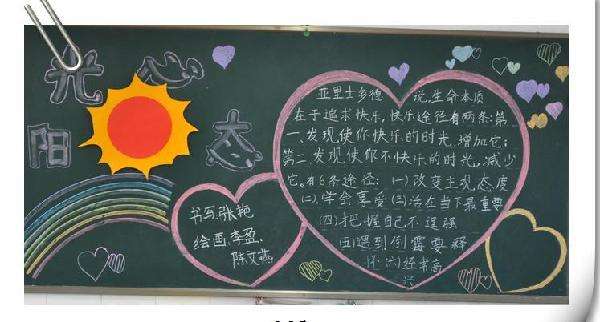 阳光心态
亚里士多德说,生命本质
在于追求快乐,快乐途径有两条:第
一、发现使你快乐的时光,增加它;
第二、发现使你不快乐的时光,减少
它。有6条途径:(一)改变主观态度
(二)学会享受(三)活在当下最重要
(四)把握自己不逞强
(五)遇到倒霉要释
怀(六)好书高
兴
书写:张艳
绘画:李盈、
陈文燕